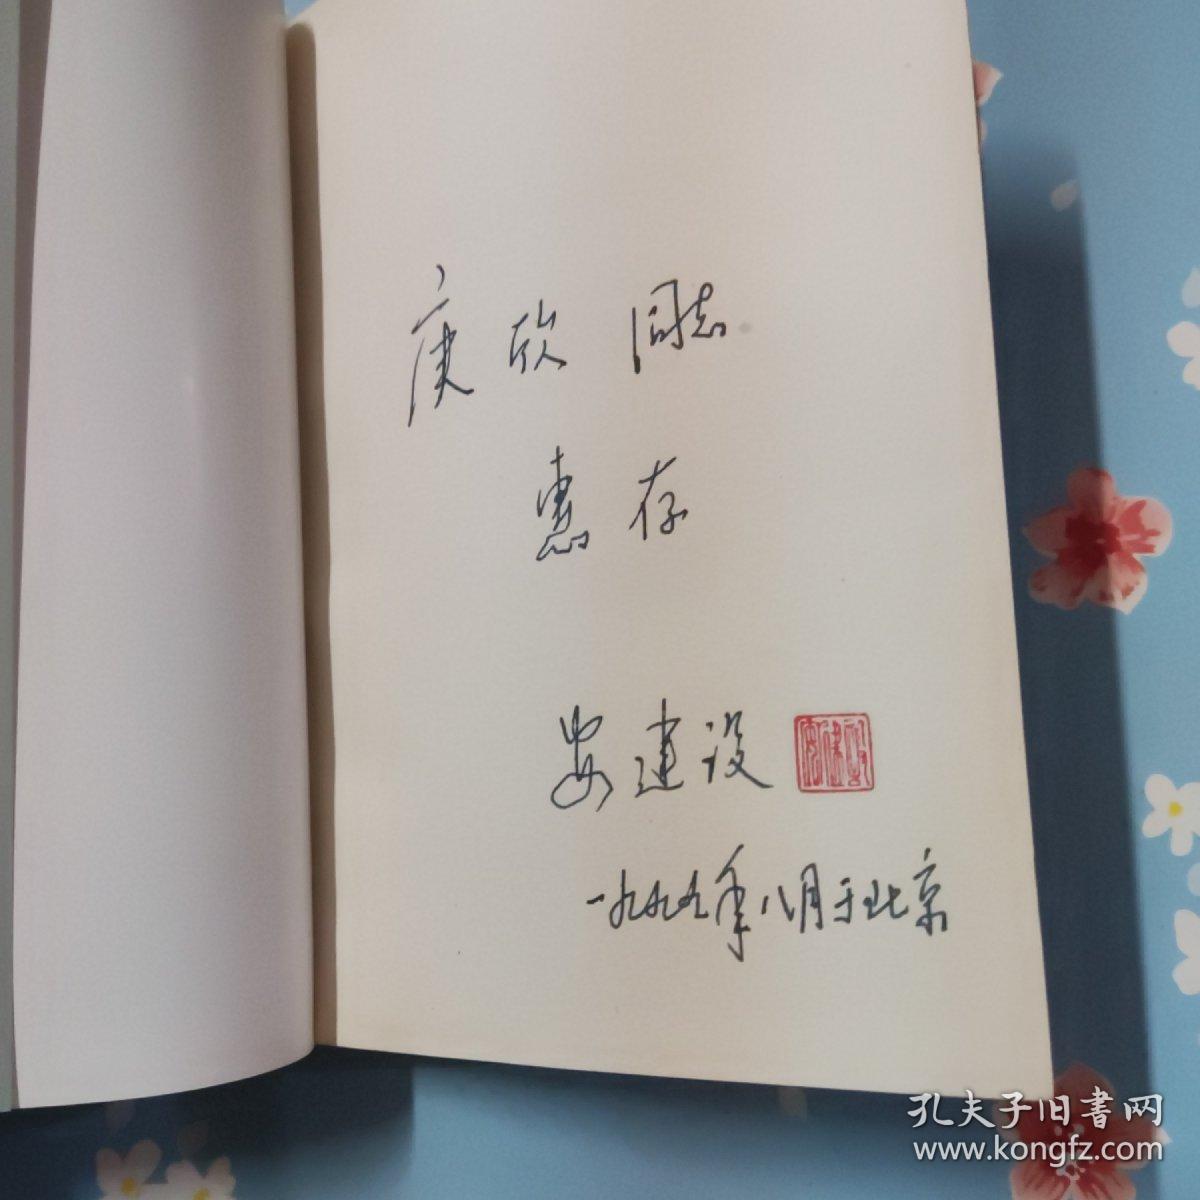 庚欣 同志
惠存
安建设
一九九九年八月于北京
孔夫子旧書网
www.kongfz.com